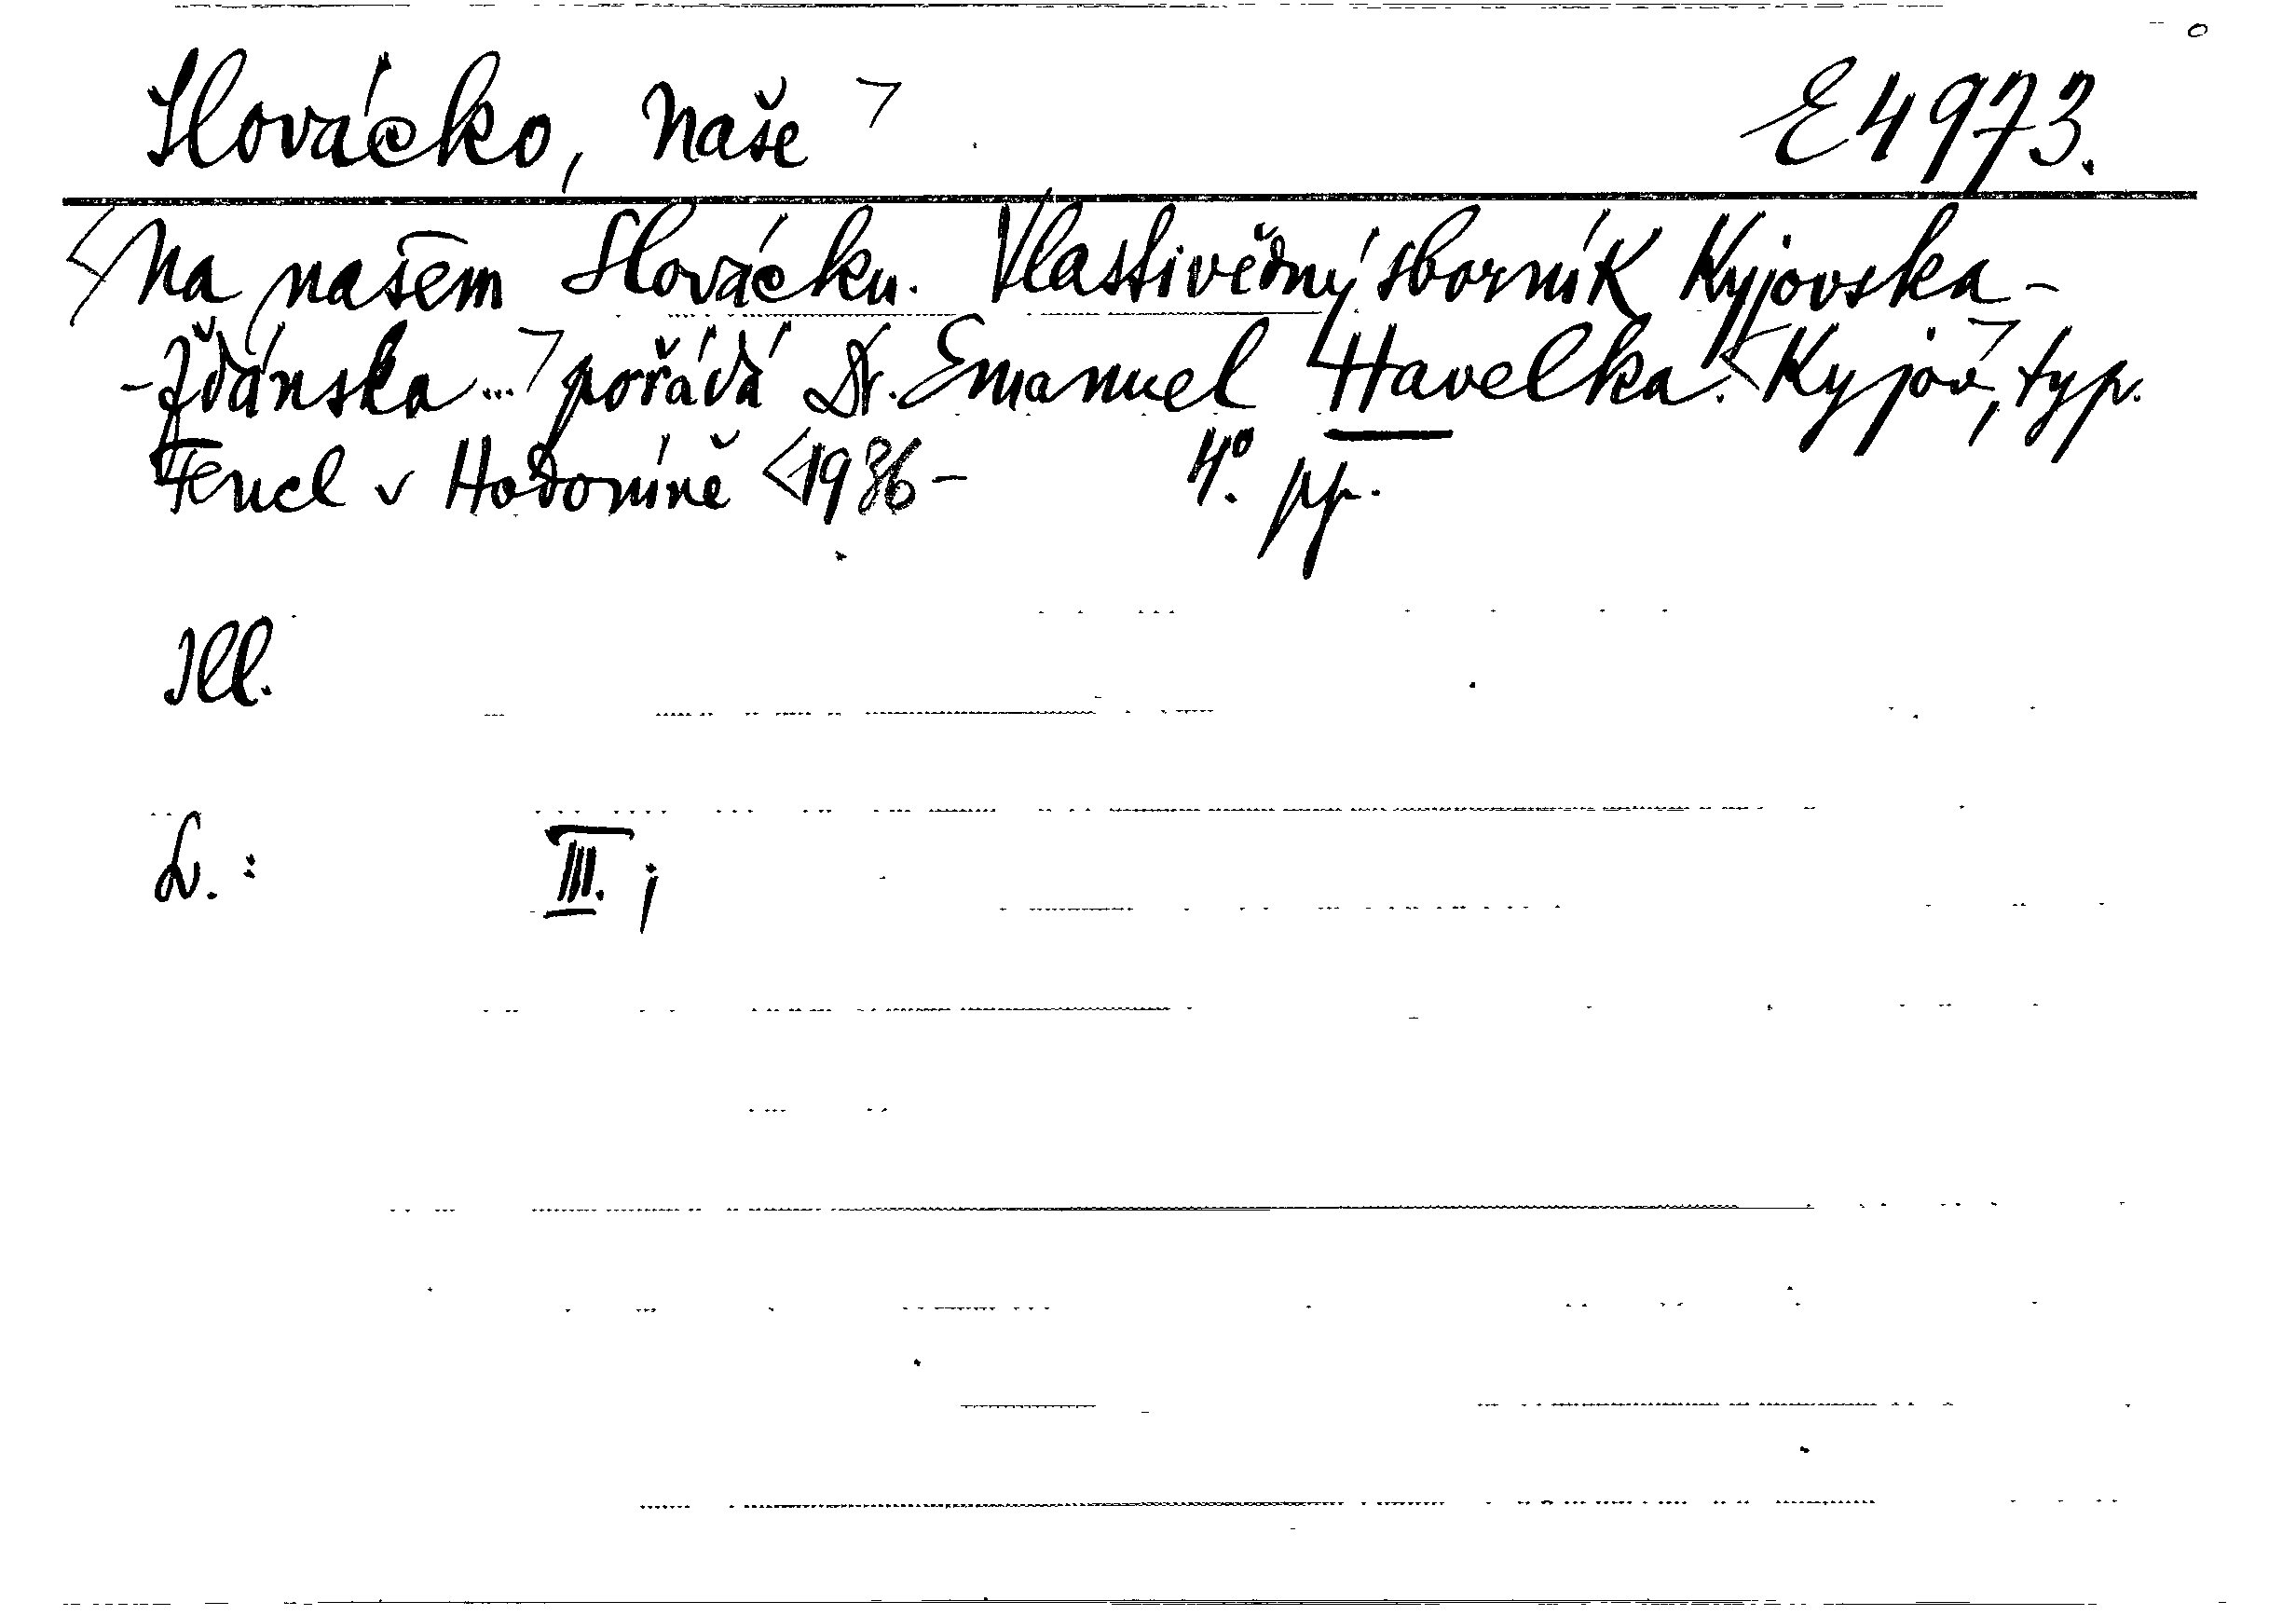 Slovácko, naše > E 4973.
<Na našem Slovácku. Vlastivědný sborník Kyjovska-
-Ždánska...> pořádá Dr. Emanuel Havelka. <Kyjov>, typ.
Fencl v Hodoníně <1936- 4°. pp.
Ill.
L.: III. ;